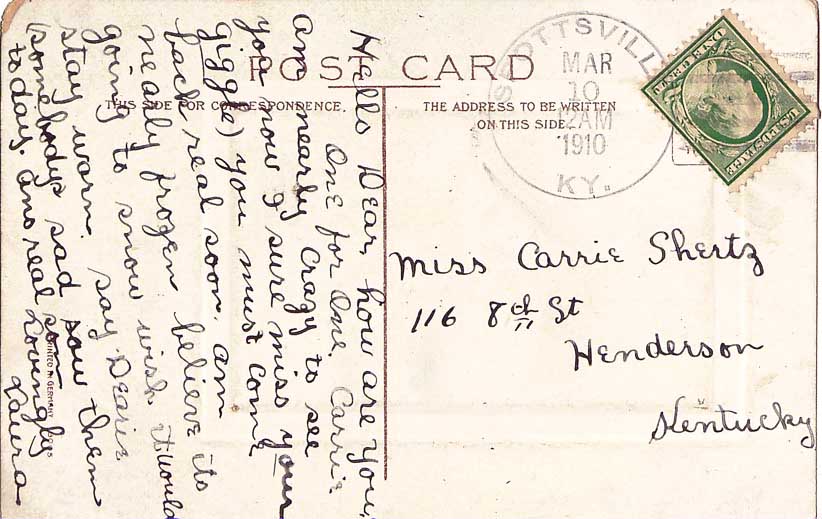 POST CARD
THIS SIDE FOR CORRESPONDENCE.
THE ADDRESS TO BE WRITTEN
ON THIS SIDE
SPOTTSVILLE
MAR
10
12AM
1910
KY.
U.S. POSTAGE
Hello Dear, how are you,
One for One. Carrie
am nearly crazy to see
you now I sure miss your
giggle) you must come
back real soon. am
nearly frozen believe its
going to snow wish it would
stay warm. say Dearie
(somebodys sad sow them
today. ans real soon
Lovingly
Laura
Miss Carrie Shertz
116 8th St
Henderson
Kentucky
PRINTED IN GERMANY